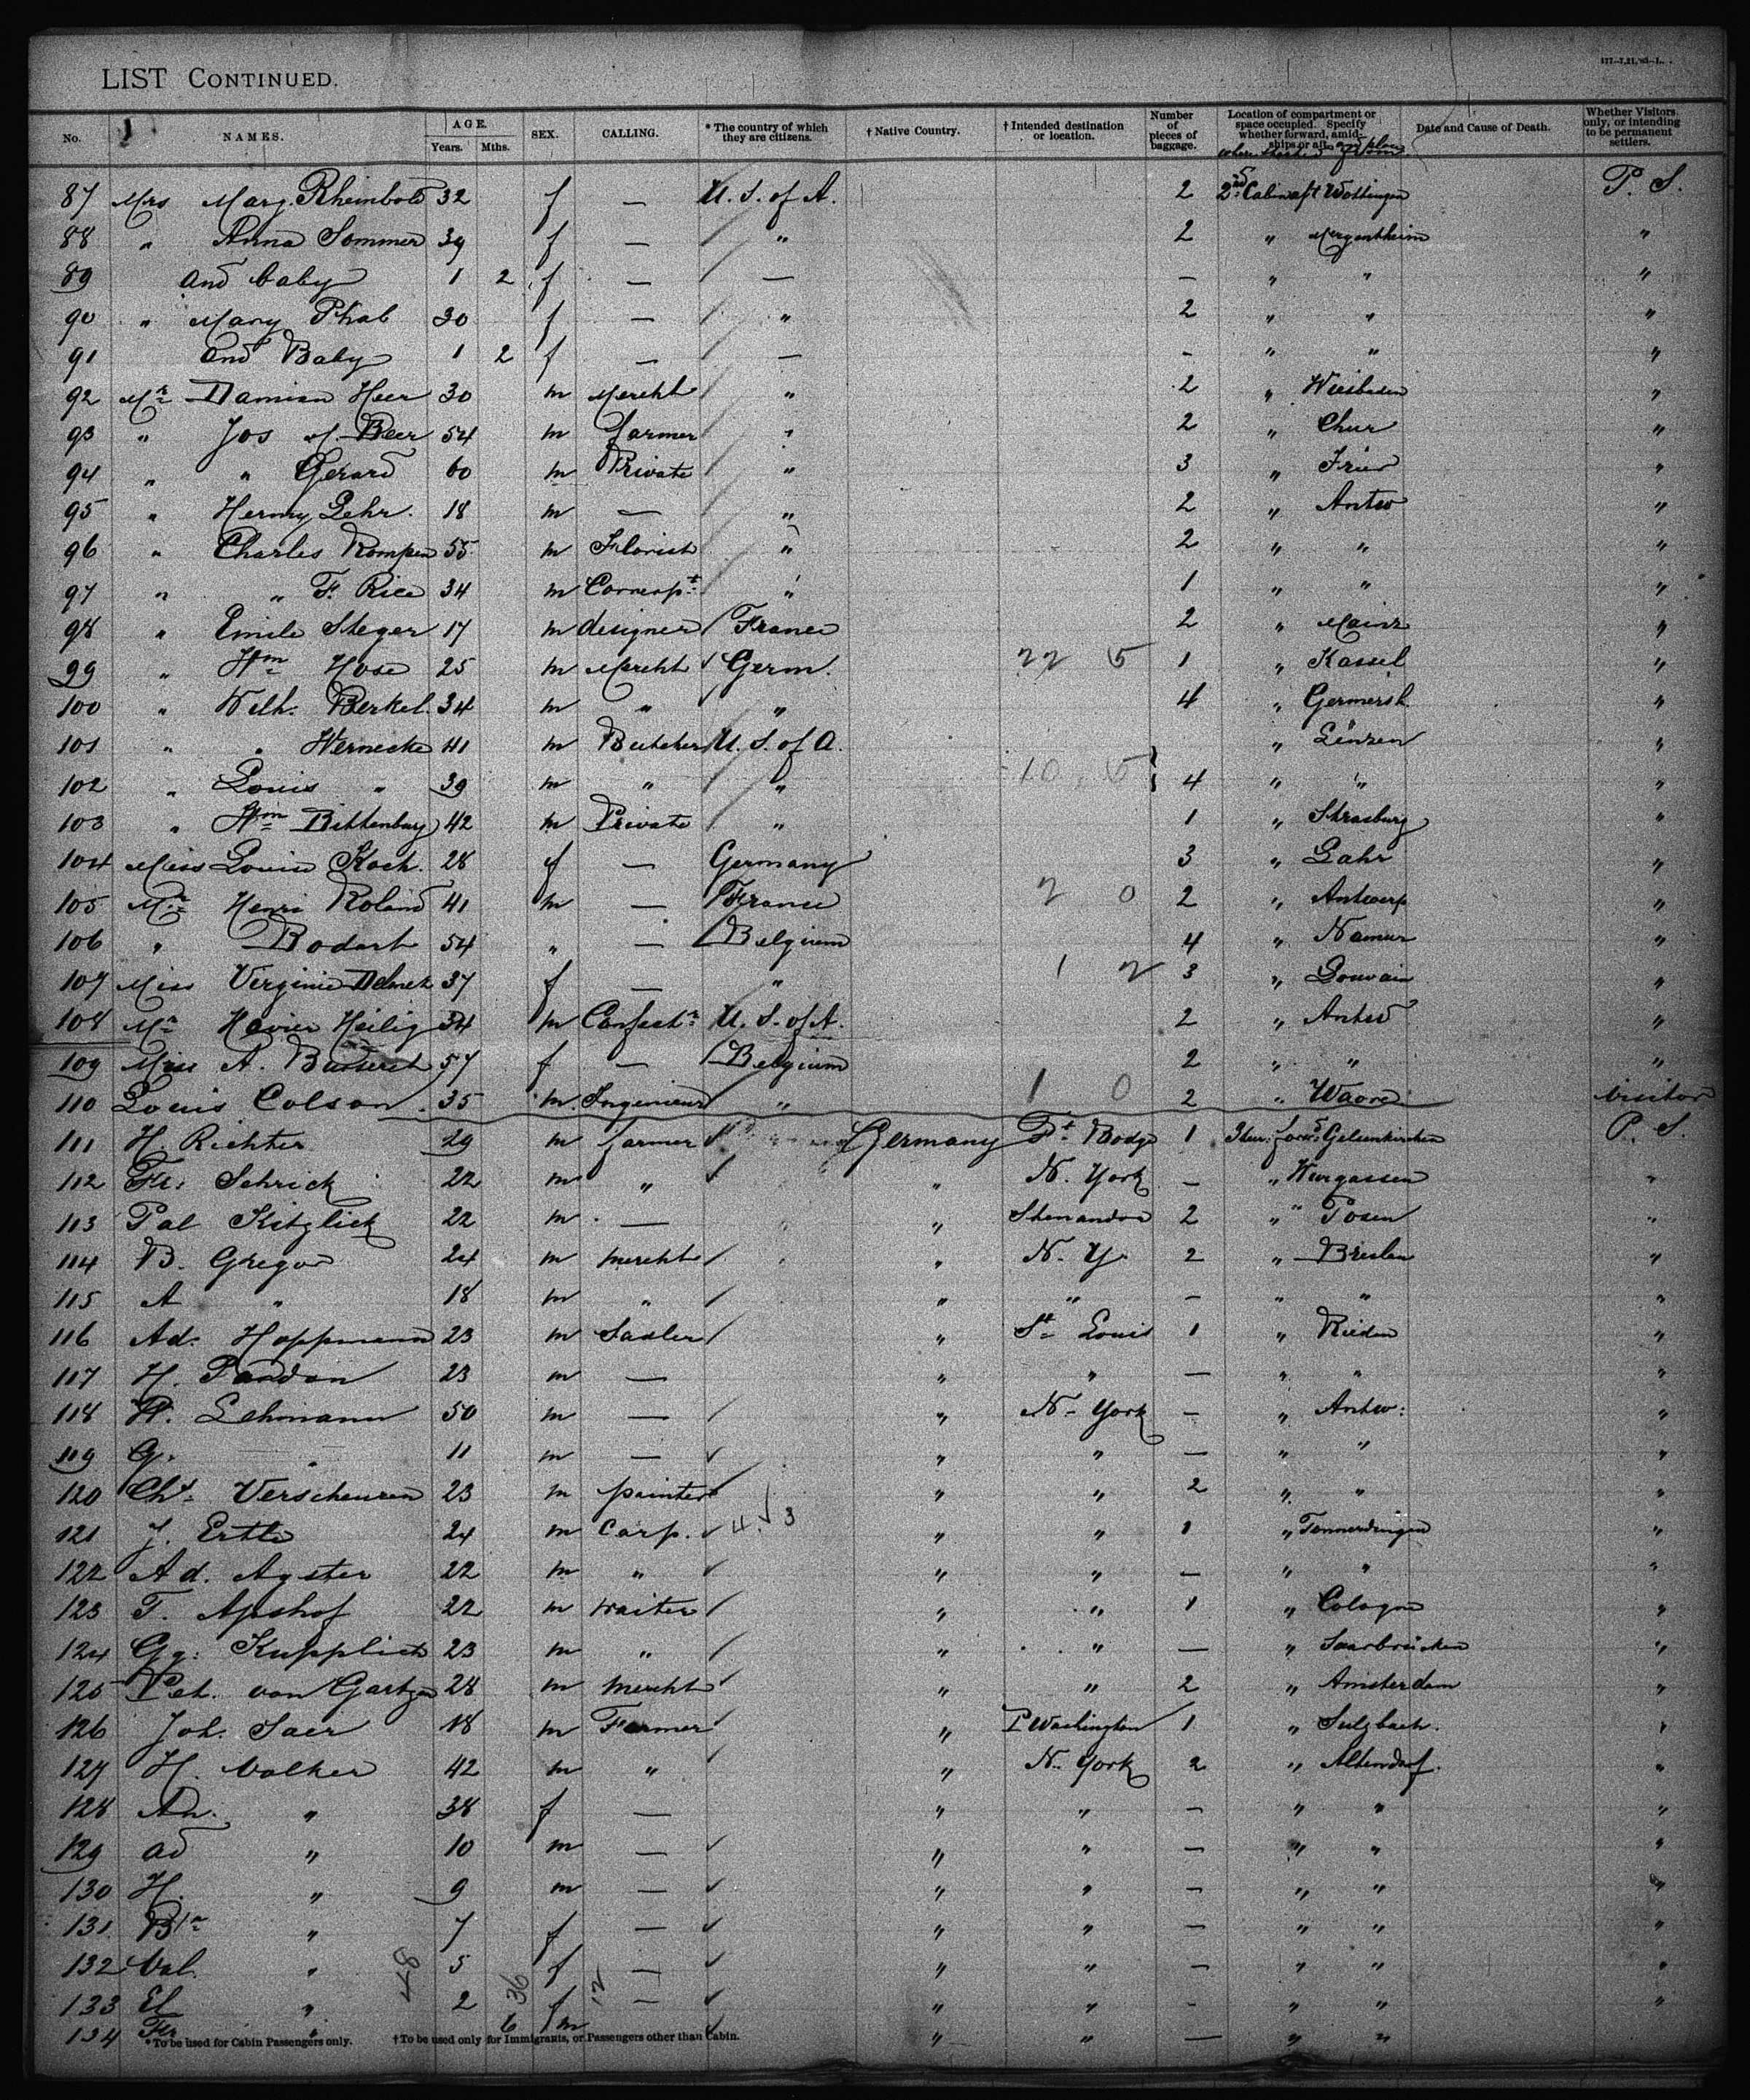 LIST CONTINUED.
No. NAMES. AGE. Years. Mths. SEX. CALLING. * The country of which they are citizens. † Native Country. † Intended destination or location. Number of pieces of baggage. Location of compartment or space occupied. Specify whether forward, amidships or aft. Date and Cause of Death. Whether Visitors only, or intending to be permanent settlers.
87 Mrs Marg. Rheinbold 32 f — U. S. of A. 2 2nd Cabin aft P. S.
88 " Anna Sommer 39 f — " 2 " Mergentheim "
89 and baby 1 2 f — — — " " "
90 " Mary Phal 30 f — " 2 " " "
91 and Baby 1 2 f — — - " " "
92 Mr Damian Heer 30 m Mercht " 2 " Wiesbaden "
93 " Jos of. Beer 54 m farmer " 2 " Chur "
94 " " Gerard 60 m Private " 3 " Trier "
95 " Henry Lehr. 18 m — " 2 " Antw "
96 " Charles Rompen 55 m Florist " 2 " " "
97 " " F. Rice 34 m " 1 " " "
98 " Emile Steger 17 m designer France 2 " Mainz "
99 " Wm Hose 25 m Mercht Germ. 22 5 1 " Kassel "
100 " Wilh. Berkel. 34 m " " 4 " Germersh. "
101 " " Wernecke 41 m Butcher U. S. of A. " "
102 " Louis " 39 m " " 10 5 4 " " "
103 " Wm Bittenburg 42 m Private " 1 " Strasburg "
104 Miss Louise Koch. 28 f — Germany 3 " Lahr "
105 Mr Henri Roland 41 m — France 2 0 2 " Antwerp "
106 " Bodart 54 " — Belgium 4 " Namur "
107 Miss Virginie 37 f — " 1 2 3 " Louvain "
108 Mr Xavier Heilig 34 m Confectr U. S. of A. 2 " Antw "
109 Miss A. 57 f — Belgium 2 " " "
110 Louis Colson. 35 m. Ingenieur " 1 0 2 " Wavre visitor
111 H. Richter 29 m farmer Germany Ft. Dodge 1 Gelsenkirchen P. S.
112 Fr. Schrick 22 m " " N. York — " Wurgassen "
113 Pal Kitzlick 22 m — " Shenandoa 2 " Posen "
114 B. Gregor 24 m mercht " N. Y 2 " Breslau "
115 A " 18 m " " " — " " "
116 Ad. Hoppmann 23 m Sadler " St Louis 1 " Rieden "
117 H. Pardon 23 m — " " — " " "
118 H. Lehmann 50 m — " N. York — " Antw: "
119 G. " 11 m — " " — " " "
120 Chr Verscheuren 23 m painter " " 2 " " "
121 J. Ertle 24 m Carp. 4 3 " " 1 " "
122 Ad. Agster 22 m " " " — " " "
123 T. Apshof 22 m waiter " " 1 " Cologne "
124 Gg: Kupplich 23 m " " " — " Saarbrücken "
125 Pet. von Gartzen 28 m mercht " " 2 " Amsterdam "
126 Joh. Saer 18 m Farmer " P Washington 1 " Sulzbach. "
127 H. Volker 42 m " " N. York 2 " Altendorf. "
128 An. " 38 f — " " — " " "
129 Ad " 10 m — " " — " " "
130 H. " 9 m — " " — " " "
131 " 7 f — " " — " " "
132 Val. " 5 f — " " — " " "
133 El " 2 f — " " - " " "
134 Fr " 6 m " " — " "
87 36 12
*To be used for Cabin Passengers only. †To be used only for Immigrants, or Passengers other than Cabin.